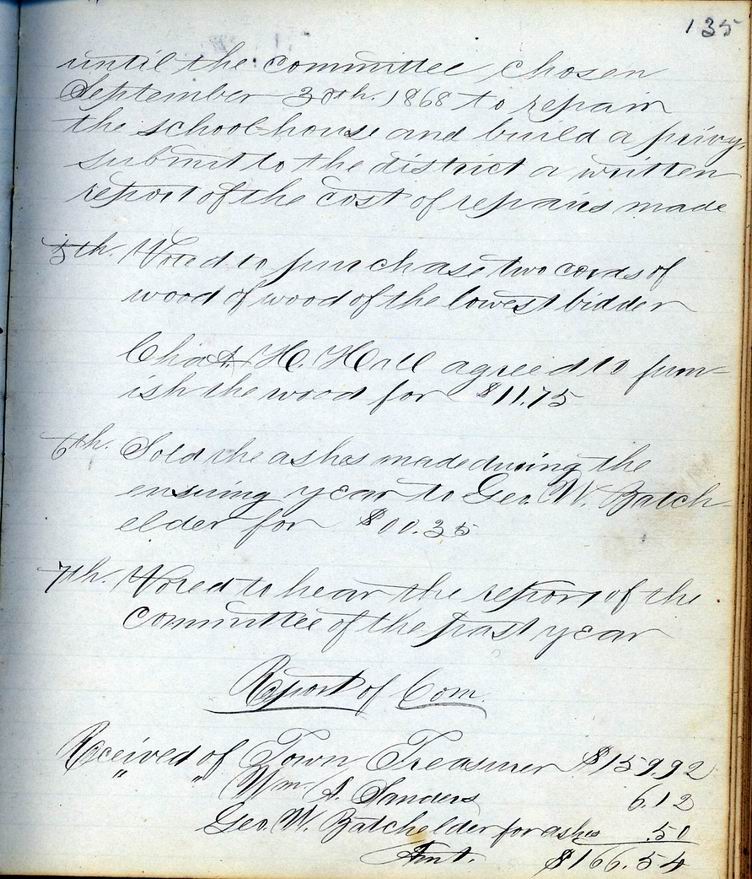 135
until the committee chosen
September 30th. 1868 to repair
the school-house and build a privy,
submit to the district a written
report of the cost of repairs made
5th. Voted to purchase two cords of
wood of wood of the lowest bidder
Chas. H. Hall agreed to furn-
ish the wood for $11.75
6th. Sold the ashes made during the
ensuing year to Geo. W. Batch-
elder for $00.35
7th. Voted to hear the report of the
committee of the past year
Report of Com.
Received of Town Treasurer $159.92
" " Wm. S. Sanders 6.12
Geo. W. Batchelder for ashes .50
Amt. $166.54